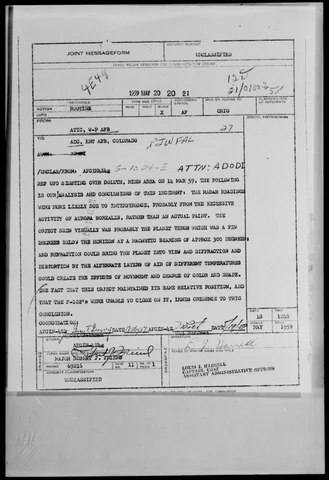 JOINT MESSAGEFORM
UNCLASSIFIED
SPACE BELOW RESERVED FOR COMMUNICATION CENTER
4E48
1959 MAY 20 20 21
ROUTINE
X
AF
ORIG
FROM: ATIC, W-P AFB
27
TO: ADC, ENT AFB, COLORADO
RJWFAL
/UNCLAS/FROM/ AFCIN
S-1024-E ATTN: ADODI
REF UFO SIGHTING OVER DULUTH, MINN AREA ON 14 MAR 59. THE FOLLOWING
IS OUR ANALYSIS AND CONCLUSIONS OF THIS INCIDENT. THE RADAR READINGS
WERE MORE LIKELY DUE TO INTERFERENCE, PROBABLY FROM THE EXCESSIVE
ACTIVITY OF AURORA BOREALIS, RATHER THAN AN ACTUAL PAINT. THE
OBJECT SEEN VISUALLY WAS PROBABLY THE PLANET VENUS WHICH WAS A FEW
DEGREES BELOW THE HORIZON AT A MAGNETIC BEARING OF APPROX 300 DEGREES
AND REFRACTION COULD BRING THE PLANET INTO VIEW AND DIFFRACTION AND
DISTORTION BY THE ALTERNATE LAYERS OF AIR OF DIFFERENT TEMPERATURES
COULD CREATE THE EFFECTS OF MOVEMENT AND CHANGE OF COLOR AND SHAPE.
THE FACT THAT THIS OBJECT MAINTAINED ITS SAME RELATIVE POSITION, AND
THAT THE F-102'S WERE UNABLE TO CLOSE ON IT, LENDS CREDENCE TO THIS
CONCLUSION.
COORDINATION:
DATE
DATE
18
MAY 1959
MAJOR ROBERT J. FRIEND
69216
11
1
UNCLASSIFIED
CAPTAIN, USAF
ASSISTANT ADMINISTRATIVE OFFICER